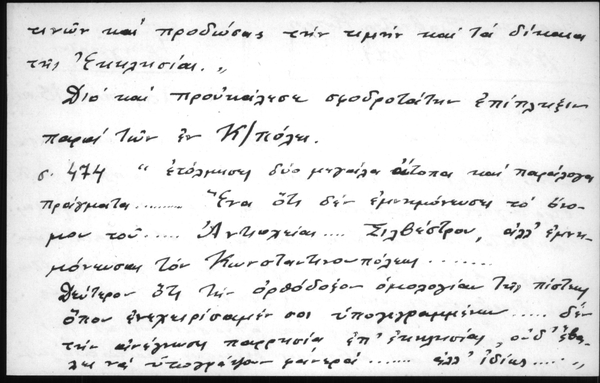 τινῶν καί προδώσας τήν τιμήν καί τά δίκαια
τῆς Ἐκκλησίας.„
Διό καί προὐκάλεσε σφοδροτάτην ἐπίπληξιν
παρά τῶν ἐν Κ/πόλει.
σ. 474 " ἐτόλμησες δύο μεγάλα ἄτοπα καί παράλογα
πράγματα......... Ἕνα ὅτι δέν ἐμνημόνευσες τό ὄνο-
μον τοῦ..... Ἀντιοχείας.... Σιλβέστρου, ἀλλ' ἐμνη-
μόνευσας τόν Κωνσταντινουπόλεως .......
Δεύτερον ὅτι τήν ὀρθόδοξον ὁμολογίαν τῆς πίστεως
ὅπου ἐνεχειρίσαμέν σοι ὑπογεγραμμένην ..... δέν
τήν ἀνέγνωσες παρρησίᾳ ἐπ' ἐκκλησίας, οὐδ' ἔβα-
λες νά ὑπογράψουν φανερά ...... ἀλλ' ἰδίως .....„